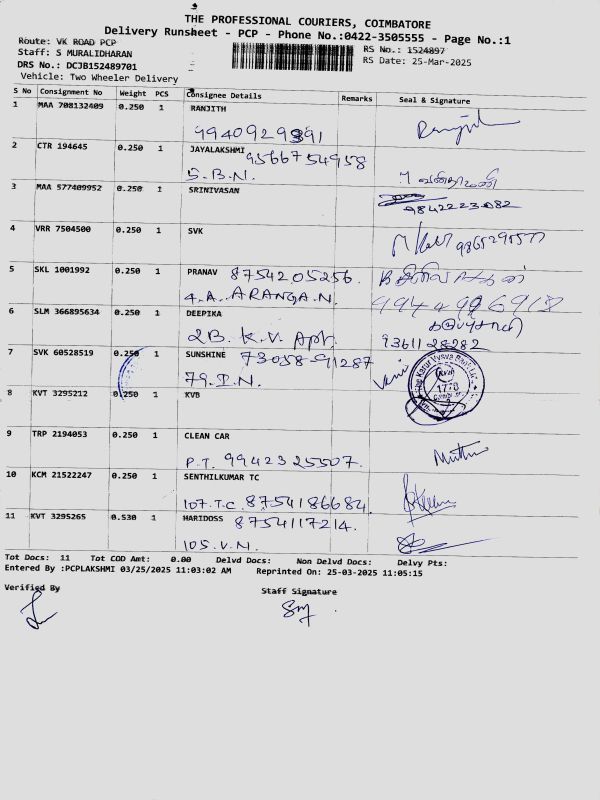 THE PROFESSIONAL COURIERS, COIMBATORE
Delivery Runsheet - PCP - Phone No.:0422-3505555 - Page No.:1
Route: VK ROAD PCP RS No.: 1524897
Staff: S MURALIDHARAN RS Date: 25-Mar-2025
DRS No.: DCJB152489701
Vehicle: Two Wheeler Delivery
S No Consignment No Weight PCS Consignee Details Remarks Seal & Signature
1 MAA 708132409 0.250 1 RANJITH
9940929391
2 CTR 194645 0.250 1 JAYALAKSHMI 9566754958
S.B.N.
3 MAA 577409952 0.250 1 SRINIVASAN
9842223082
4 VRR 7504500 0.250 1 SVK
5 SKL 1001992 0.250 1 PRANAV 8754205256
4.A. ARANGA.N.
6 SLM 366895634 0.250 1 DEEPIKA
2B. K.V. Apt. 9361128282
7 SVK 60528519 0.250 1 SUNSHINE 73058-91287
79.I.N.
8 KVT 3295212 0.250 1 KVB
9 TRP 2194053 0.250 1 CLEAN CAR
P.T. 9942325507. Muthu
10 KCM 21522247 0.250 1 SENTHILKUMAR TC
107.T.C. 8754186684.
11 KVT 3295265 0.530 1 HARIDOSS 8754117214.
105.V.N.
Tot Docs: 11 Tot COD Amt: 0.00 Delvd Docs: Non Delvd Docs: Delvy Pts:
Entered By :PCPLAKSHMI 03/25/2025 11:03:02 AM Reprinted On: 25-03-2025 11:05:15
Verified By Staff Signature